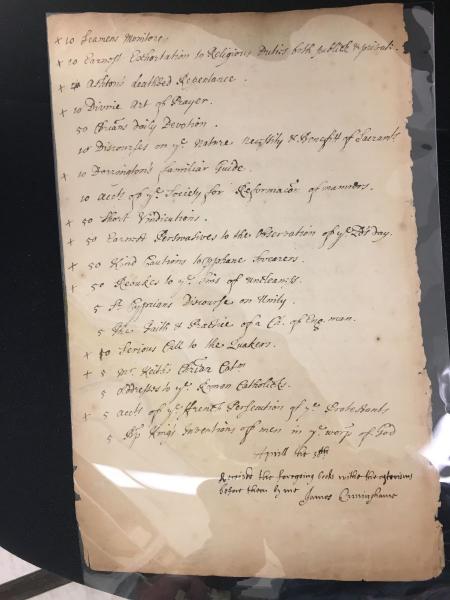 + 10 Seamens Monitors
+ 10 Earnest Exhortation to Religious Duties both publick & private.
+ Ashtons deathbed Repentance.
+ 10 Divine Art of Prayer.
50 Xtians Daily Devotion.
10 Discourses on ye. Nature Necessity & Benefitt of Sacramts
+ 10 Dorrington's Familiar Guide.
10 Accts of ye. Society for Reformacon of manners.
+ 50 Short Vindications.
+ 50 Earnest Perswatives to the Observation of ye. Lds day.
+ 50 Kind Cautions to prophane Swearers.
+ 50 Rebukes to ye. Sins of uncleaness.
5 St. Cyprians Discourse on Unity.
5 The Faith & Practice of a Ch. of Eng. man.
+ 10 Serious Call to the Quakers.
+ 5 Mr. Keith's Catm
5 Addresses to ye. Roman Catholicks.
+ 5 Accts of ye. ffrench Persecution of ye. Protestants
5 Bp King's Inventions of men in ye. worsp. of God
Aprill the
Received the foregoing books withe the asterisms
before them by me James Cunninghame